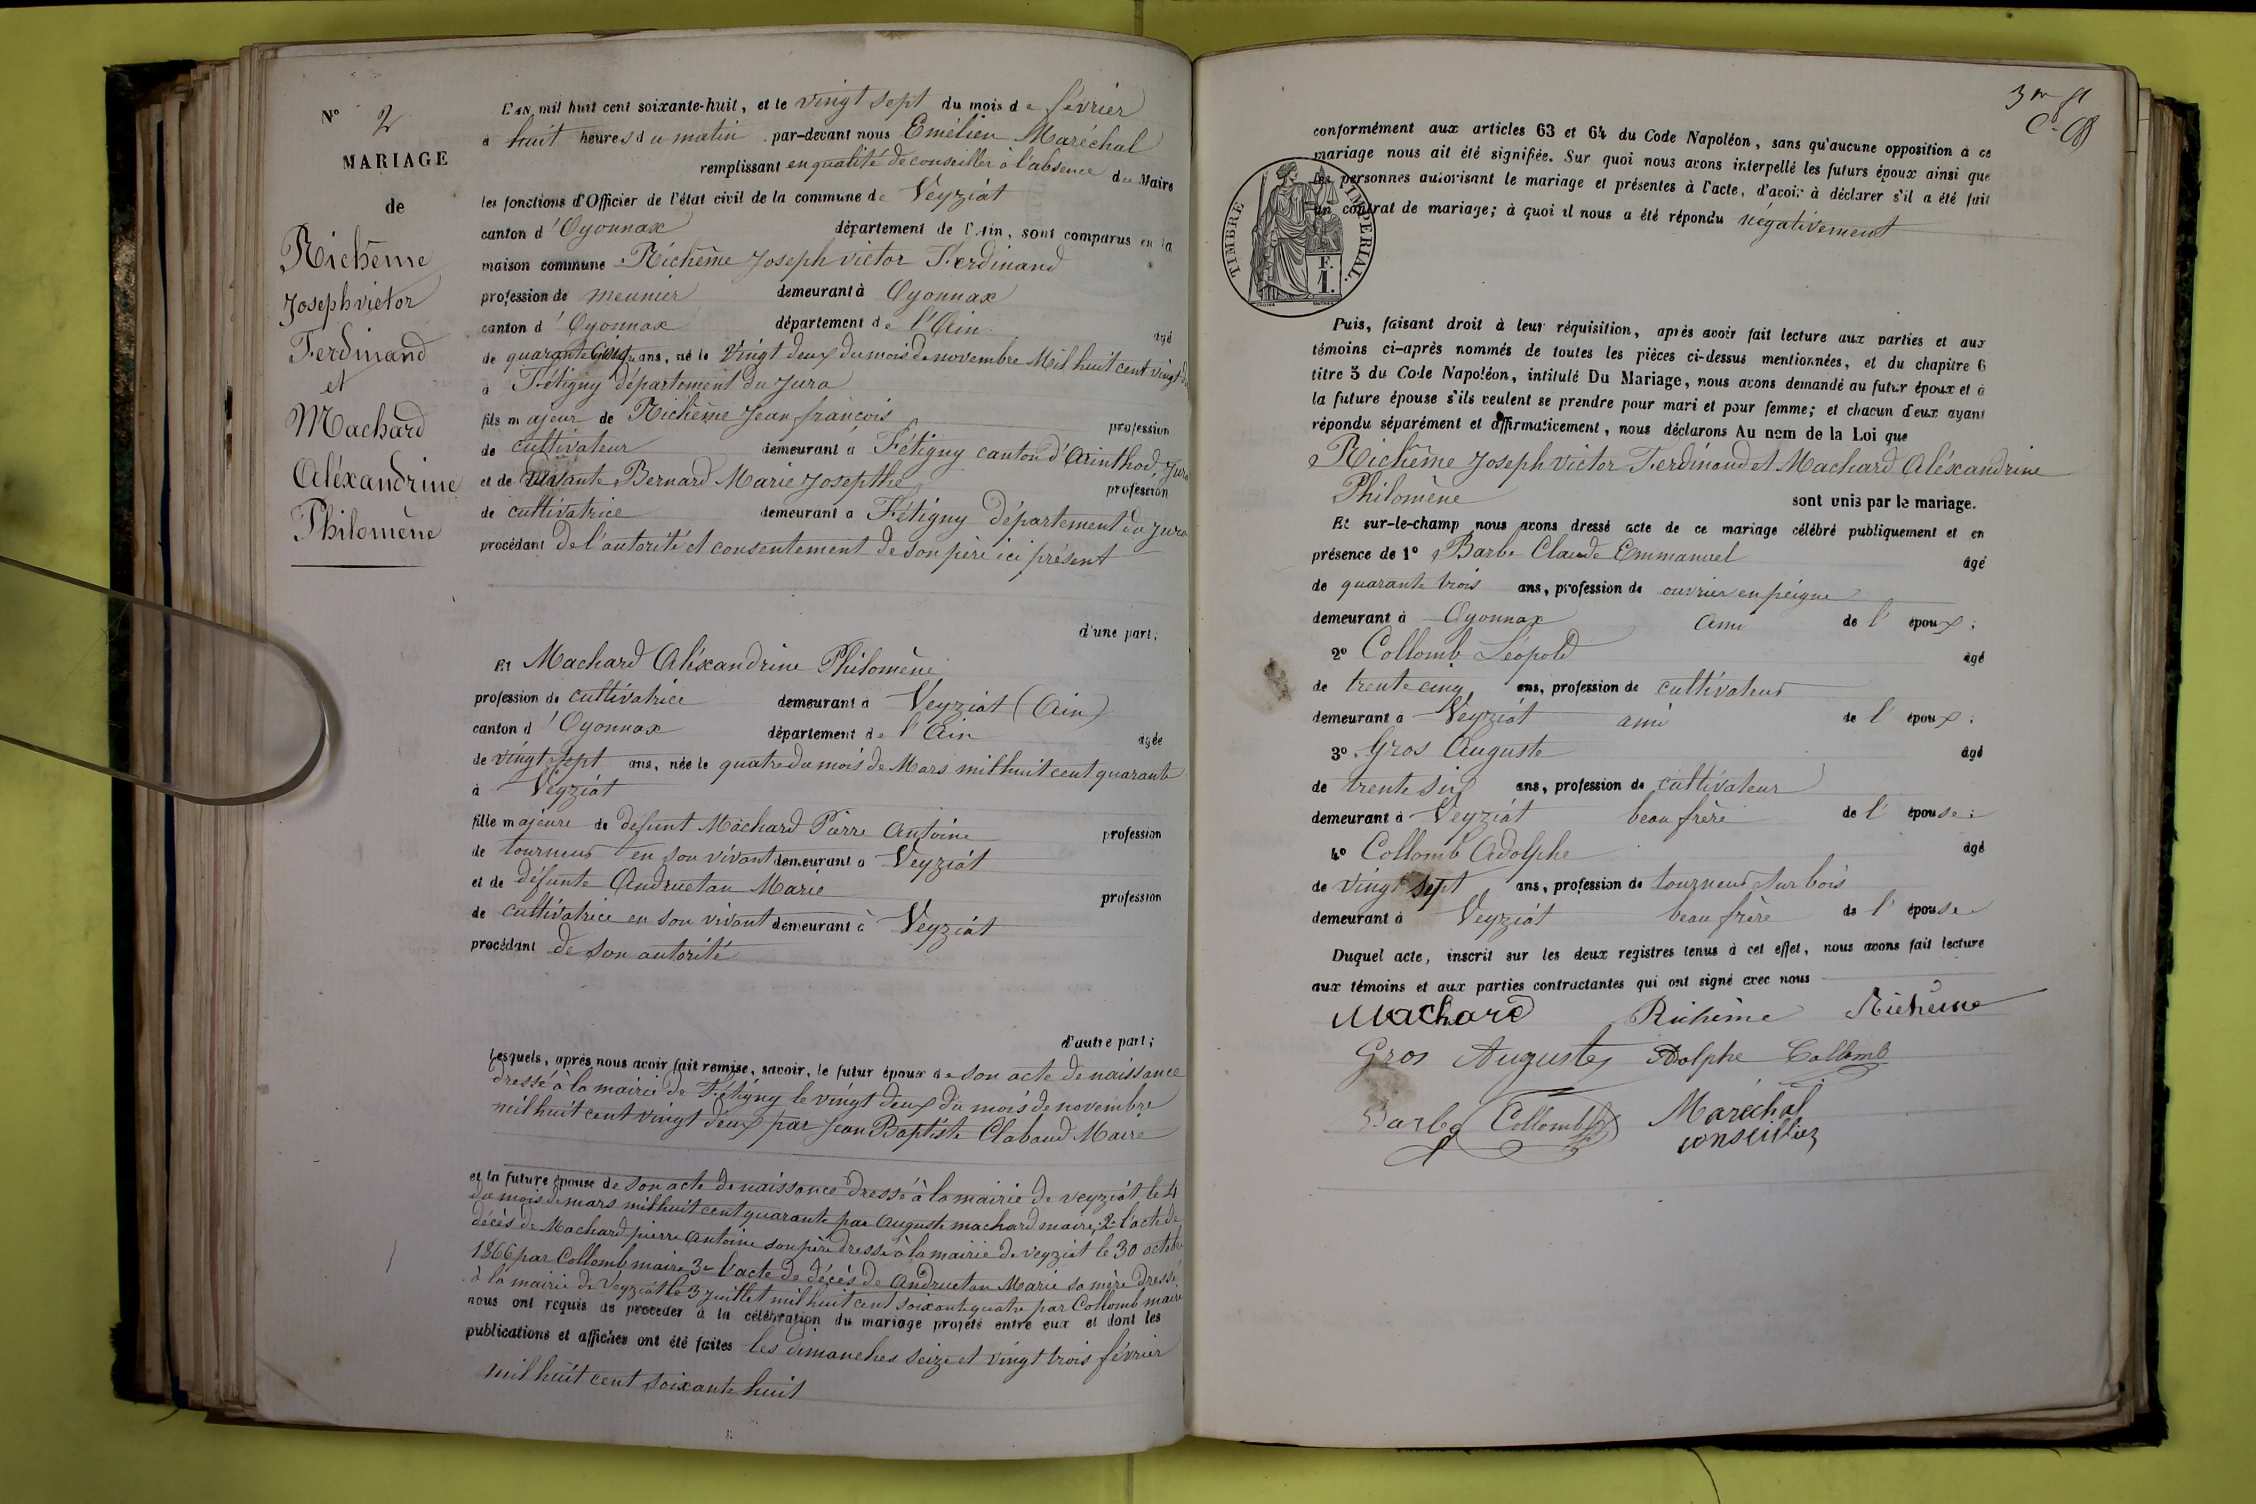 N° 2
MARIAGE
de
Richême
Joseph victor
Ferdinand
et
Machard
Aléxandrine
Philomène
L'AN mil huit cent soixante-huit, et le vingt sept du mois de février
à huit heures du matin par-devant nous Emélien Maréchal
remplissant en qualité de conseiller à l'absence du Maire
les fonctions d'Officier de l'état civil de la commune de Veyziat
canton d'Oyonnax département de l'Ain, sont comparus en la
maison commune Richême Joseph victor Ferdinand
profession de meunier demeurant à Oyonnax
canton d'Oyonnax département de l'Ain âgé
de quarante cinq ans, né le vingt deux du mois de novembre Mil huit cent vingt
à Fétigny département du Jura
fils majeur de Richême Jean françois profession
de cultivateur demeurant à Fétigny canton d'Arinthod, Jura
et de vivante Bernard Marie Josepthe profession
de cultivatrice demeurant à Fétigny département du Jura
procédant de l'autorité et consentement de son père ici présent
d'une part;
Et Machard Aléxandrine Philomène
profession de cultivatrice demeurant à Veyziat (Ain)
canton d'Oyonnax département de l'Ain âgée
de vingt sept ans, née le quatre du mois de Mars mil huit cent quarante
à Veyziat
fille majeure de défunt Machard Pierre Antoine profession
de tourneur en son vivant demeurant à Veyziat
et de défunte Andruetan Marie profession
de cultivatrice en son vivant demeurant à Veyziat
procédant de son autorité
d'autre part;
Lesquels, après nous avoir fait remise, savoir, le futur époux de son acte de naissance
dressé à la mairie de Fétigny le vingt deux du mois de novembre
mil huit cent vingt deux par Jean Baptiste Clabaud Maire
et la future épouse de son acte de naissance dressé à la mairie de veyziat le 4
du mois de mars mil huit cent quarante par Auguste machard maire, 2° l'acte de
décès de Machard pierre Antoine son père dressé à la mairie de veyziat le 30 octobre
1866 par Collomb maire 3° l'acte de décès de Andruetan Marie sa mère dressé
à la mairie de Veyziat le 3 juillet mil huit cent soixante quatre par Collomb maire
nous ont requis de procéder à la célébration du mariage projeté entre eux et dont les
publications et affiches ont été faites les dimanches seize et vingt trois février
mil huit cent soixante huit
conformément aux articles 63 et 64 du Code Napoléon, sans qu'aucune opposition à ce
mariage nous ait été signifiée. Sur quoi nous avons interpellé les futurs époux ainsi que
les personnes autorisant le mariage et présentes à l'acte, d'avoir à déclarer s'il a été fait
un contrat de mariage; à quoi il nous a été répondu négativement
TIMBRE IMPERIAL.
F.
1.
Puis, faisant droit à leur réquisition, après avoir fait lecture aux parties et aux
témoins ci-après nommés de toutes les pièces ci-dessus mentionnées, et du chapitre 6
titre 5 du Code Napoléon, intitulé Du Mariage, nous avons demandé au futur époux et à
la future épouse s'ils veulent se prendre pour mari et pour femme; et chacun d'eux ayant
répondu séparément et affirmativement, nous déclarons Au nom de la Loi que
Richême Joseph Victor Ferdinand et Machard Aléxandrine
Philomène sont unis par le mariage.
Et sur-le-champ nous avons dressé acte de ce mariage célébré publiquement et en
présence de 1° Barbe Claude Emmanuel âgé
de quarante trois ans, profession de ouvrier en peigne
demeurant à Oyonnax ami de l'époux;
2° Collomb Léopold âgé
de trente cinq ans, profession de cultivateur
demeurant à Veyziat ami de l'époux;
3° Gros Auguste âgé
de trente six ans, profession de cultivateur
demeurant à Veyziat beau frère de l'épouse;
4° Collomb Adolphe âgé
de vingt sept ans, profession de tourneur sur bois
demeurant à Veyziat beau frère de l'épouse
Duquel acte, inscrit sur les deux registres tenus à cet effet, nous avons fait lecture
aux témoins et aux parties contractantes qui ont signé avec nous
Machard Richême Richême
Gros Auguste Adolphe Collomb
Barbe Collomb Maréchal
conseiller